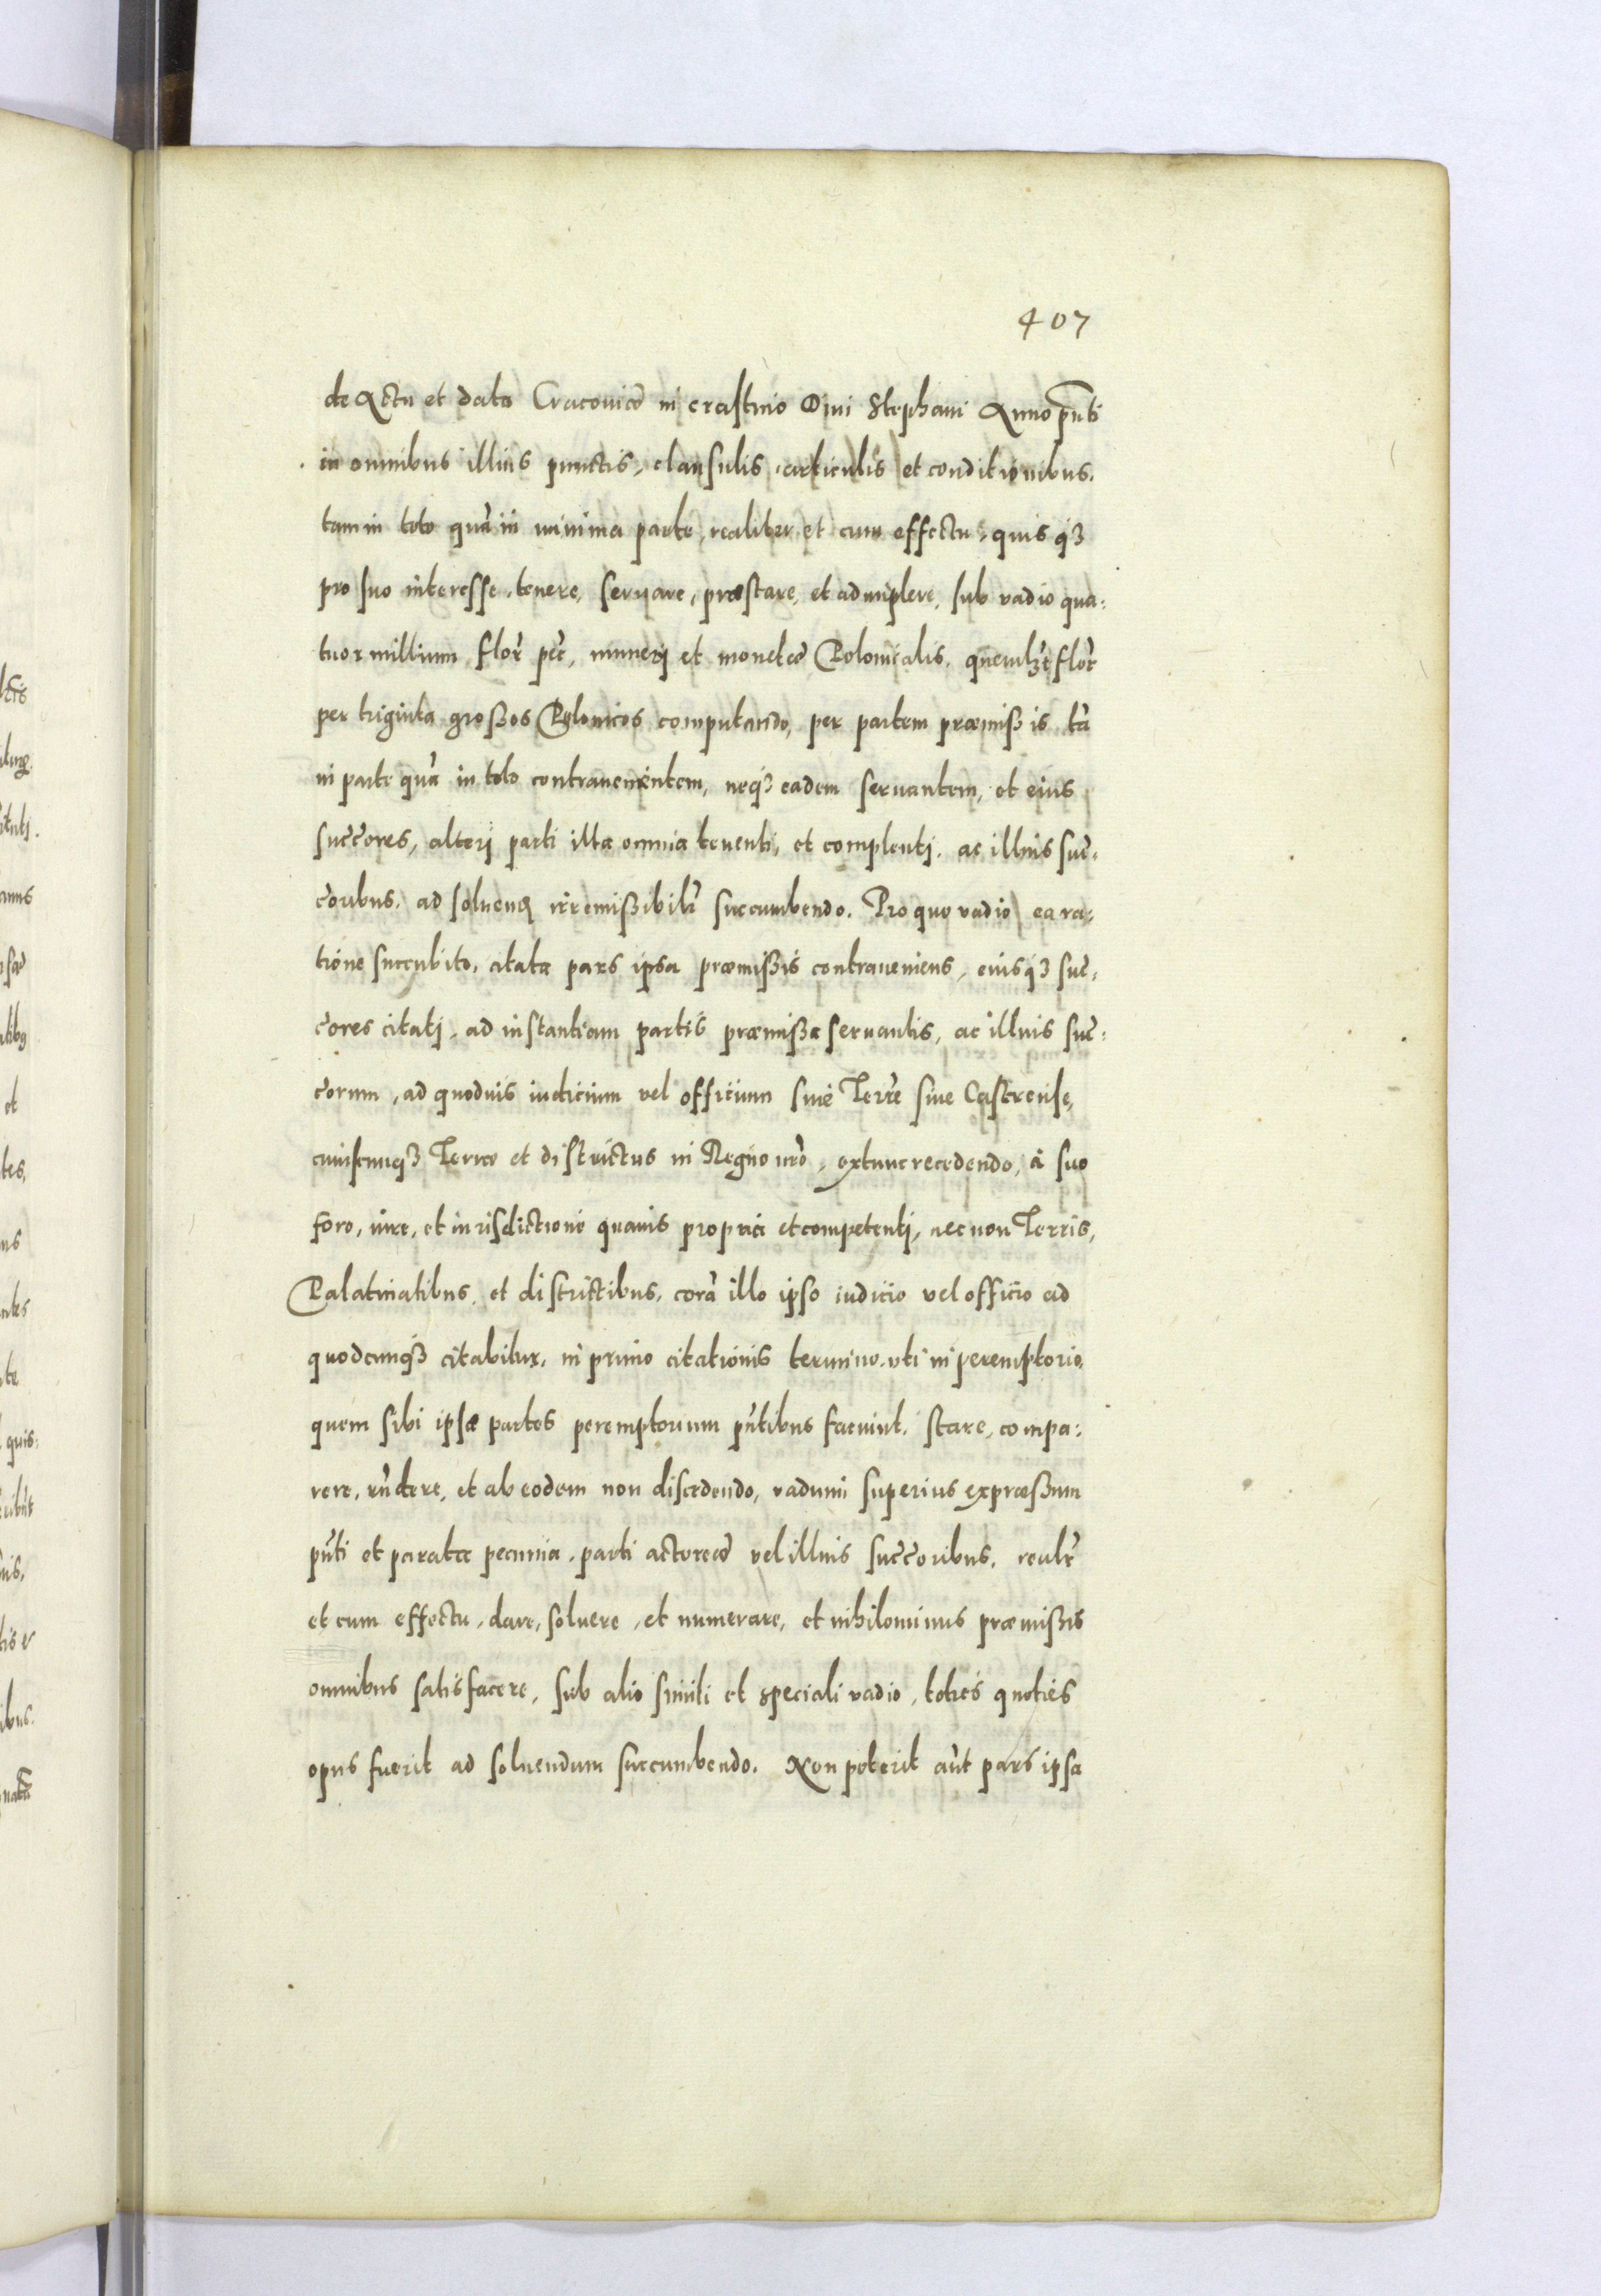 407
de Actu et dato Cracoviæ in crastino Divi Stephani Anno pñti
in omnibus illius punctis, clausulis, articulis et conditionibus.
tam in toto quã in minima parte, realiter et cum effectu, quisqȝ
pro suo interesse, tenere, seruare, præstare, et adimplere, sub vadio qua:
tuor millium flor̃ pec̃, numeri et monetæ Polonicalis, quemlȝt flor̃
per triginta grossos Polonicos computando, per partem præmissis tã
in parte quã in toto contrauenientem, neqȝ eadem seruantem, et eius
succ̃ores, alterj parti illa omnia tenenti, et complentj. ac illius suc̃:
c̃oribus, ad soluenđ irremissibilr̃ succumbendo. Pro quo vadio ea ra:
tione succubito, citata pars ipsa præmissis contraueniens, eiusqȝ suc̃:
c̃ores citatj, ad instantiam partis præmissa seruantis, ac illius suc̃:
c̃orum, ad quoduis iudicium vel officium siue Terr̃e siue Castrense,
cuiuscunqȝ Terræ et districtus in Regno nr̃o, extunc recedendo, à suo
foro, iure, et iurisdictione quauis propria et competentj, nec non Terris,
Palatinatibus, et districtibus, corã illo ipso iudicio vel officio ad
quodcunqȝ citabitur, in primo citationis termino, uti in peremptorio,
quem sibi ipsæ partes peremptorium pñtibus faciunt, stare, compa:
rere, rñdere, et ab eodem non discedendo, vadium superius expressum
pñti et parata pecunia, parti actoreæ vel illius succ̃oribus, realr̃
et cum effectu, dare, soluere, et numerare, et nihilominus præmissis
omnibus satisfacere, sub alio simili et speciali vadio, toties quoties
opus fuerit ad soluendum succumbendo. Non poterit aũt pars ipsa